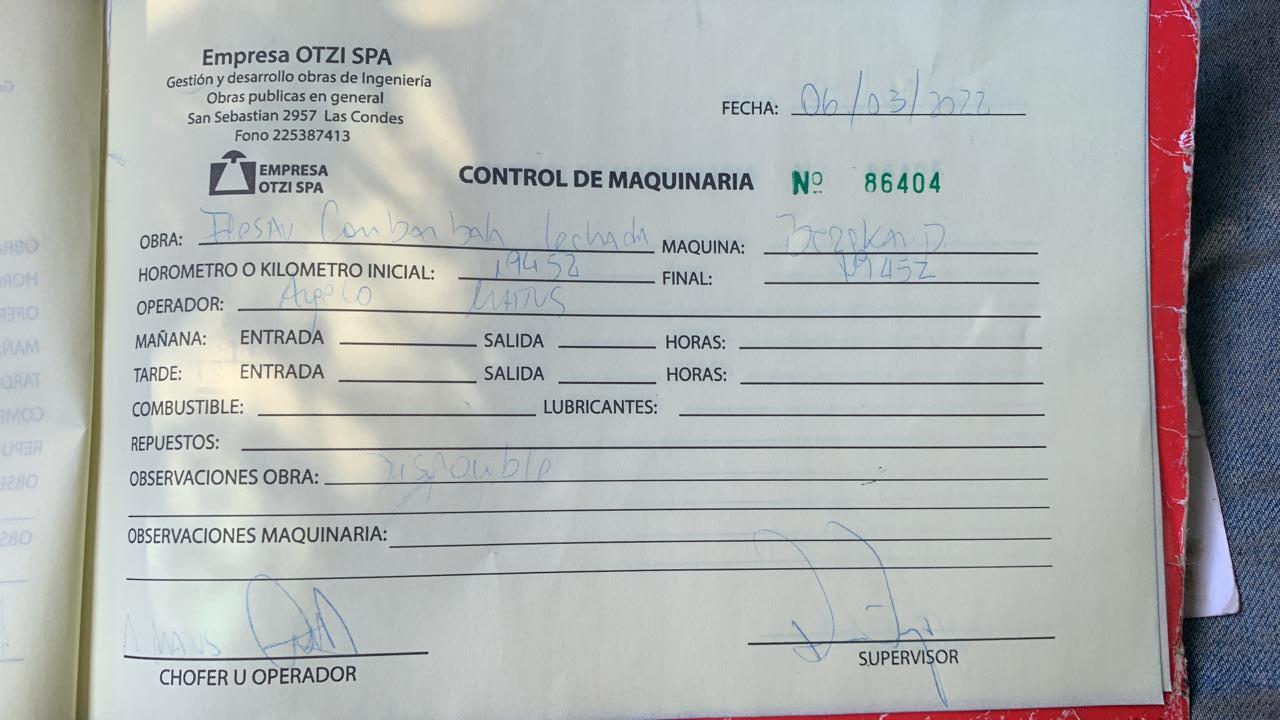 Empresa OTZI SPA
Gestión y desarrollo obras de Ingeniería
Obras publicas en general
San Sebastian 2957 Las Condes
Fono 225387413
FECHA: 06/03/2022
EMPRESA
OTZI SPA
CONTROL DE MAQUINARIA Nº 86404
OBRA: lechada MAQUINA:
HOROMETRO O KILOMETRO INICIAL: 19452 FINAL: 19452
OPERADOR: Angelo MATUS
MAÑANA: ENTRADA SALIDA HORAS:
TARDE: ENTRADA SALIDA HORAS:
COMBUSTIBLE: LUBRICANTES:
REPUESTOS:
OBSERVACIONES OBRA: Disponible
OBSERVACIONES MAQUINARIA:
A MATUS
CHOFER U OPERADOR
SUPERVISOR